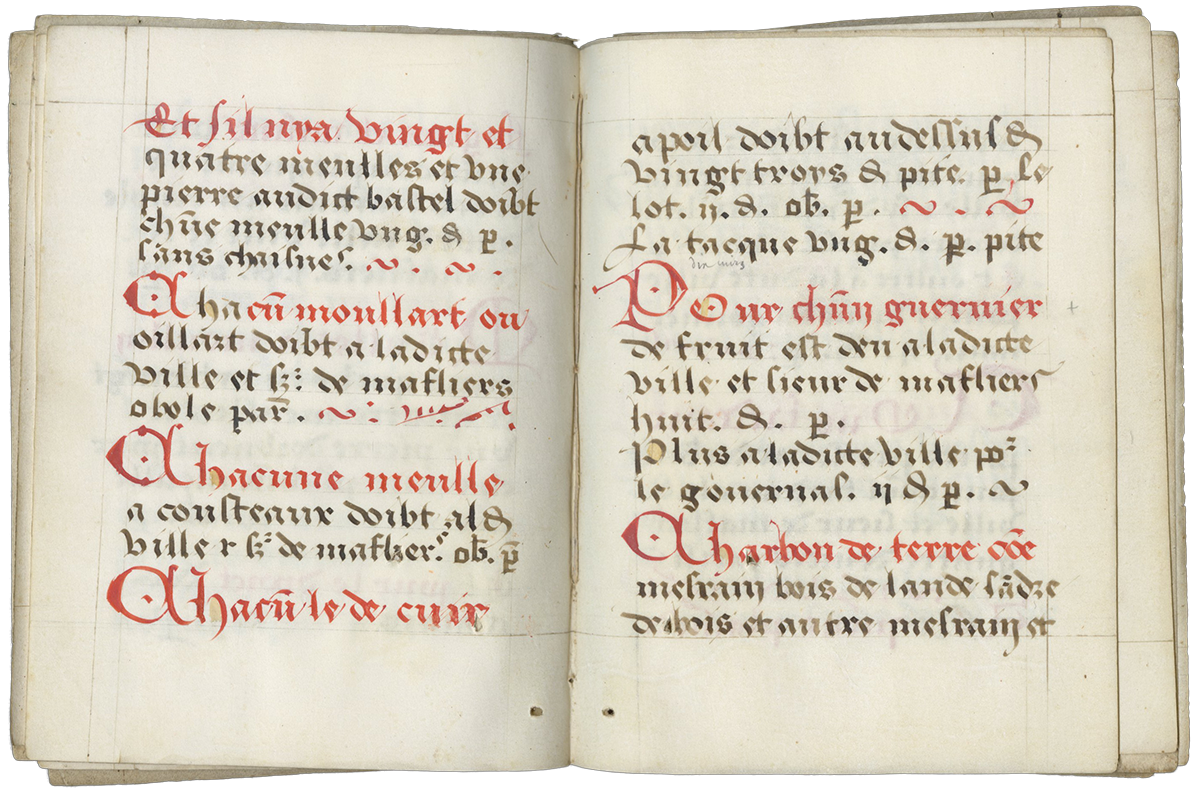 Et sil nya vingt et
quatre meulles et vne
pierre audict bastel doibt
chūe meulle vng. d̶ p̄.
sans chaisnes.
Chacū moullart ou
oillart doibt a ladicte
ville et sʳ: de mafliers
obole par̄.
Chacune meulle
a cousteaux doibt al d̶
ville r sʳ de mafliers. ob. p̄
Chacū le de cuir
a poil doibt au dessus d̶
vingt troys d̶ pite. p̄. Le
lot. ij. d̶. ob. p̄.
La tacque vng. d̶. p̄. pite
Pour chūn guernier
de fruit est deu a ladicte
ville et sieur de mafliers
huit. d̶. p̄.
Plus a ladicte ville poʳ
le gouernal. ij d̶ p̄.
Charbon de terre cōe
mesrain bois de lande
de bois et autre mesrain et